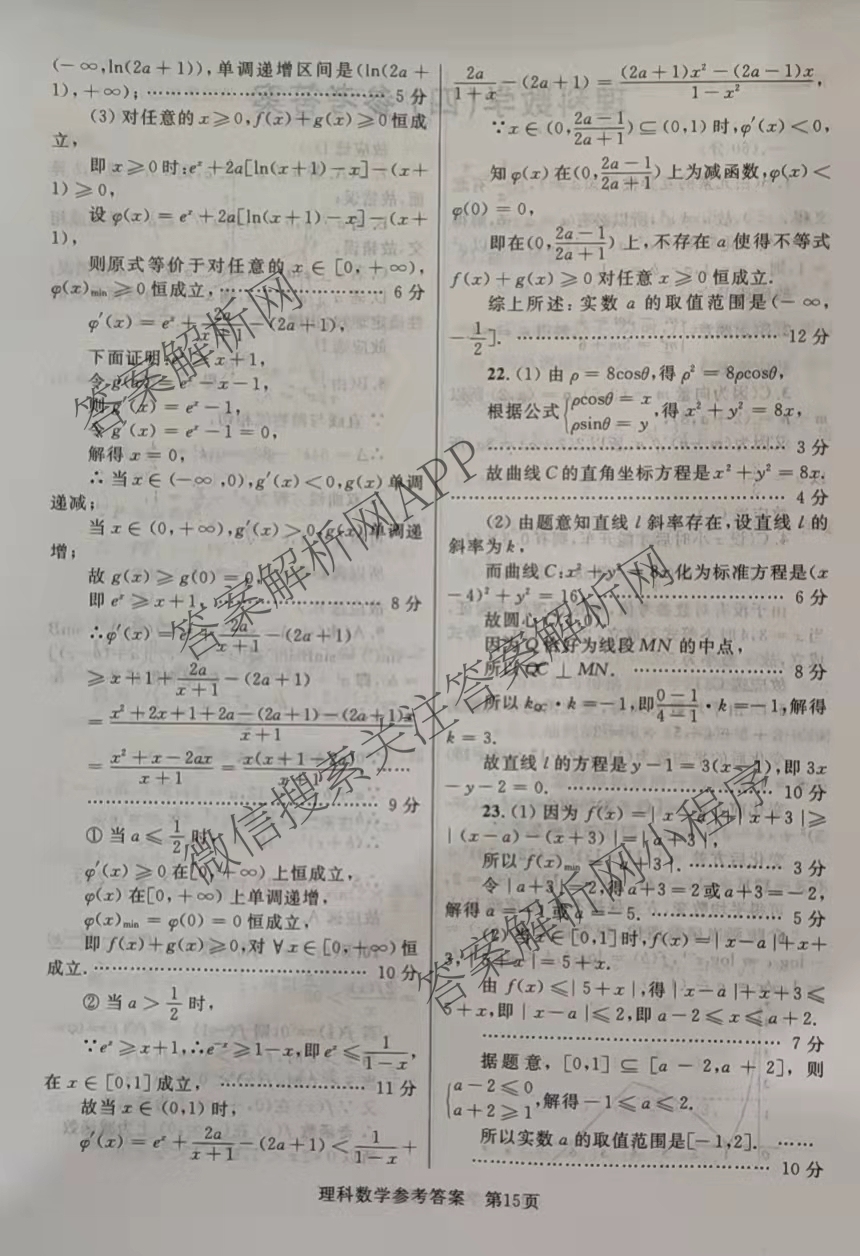 (-∞,ln(2a+1)),单调递增区间是(ln(2a+
1),+∞); …… 5分
(3)对任意的x≥0,f(x)+g(x)≥0恒成
立,
即x≥0时:eˣ+2a[ln(x+1)-x]-(x+
1)≥0,
设φ(x)=eˣ+2a[ln(x+1)-x]-(x+
1),
则原式等价于对任意的x∈[0,+∞),
φ(x)min≥0恒成立, …… 6分
φ′(x)=eˣ+ -(2a+1),
下面证明: x+1,
令g(x)=eˣ-x-1,
则g′(x)=eˣ-1,
令g′(x)=eˣ-1=0,
解得x=0,
∴当x∈(-∞,0),g′(x)<0,g(x)单调
递减;
当x∈(0,+∞),g′(x)>0,g(x)单调递
增;
故g(x)≥g(0)=0,
即eˣ≥x+1, …… 8分
∴φ′(x)=eˣ+2a/(x+1)-(2a+1)
≥x+1+2a/(x+1)-(2a+1)
=(x²+2x+1+2a-(2a+1)-(2a+1)x)/(x+1)
=(x²+x-2ax)/(x+1)=x(x+1- ……
…… 9分
①当a≤1/2时,
φ′(x)≥0在[0,+∞)上恒成立,
φ(x)在[0,+∞)上单调递增,
φ(x)min=φ(0)=0恒成立,
即f(x)+g(x)≥0,对∀x∈[0,+∞)恒
成立. …… 10分
②当a>1/2时,
∵eˣ≥x+1,∴e⁻ˣ≥1-x,即eˣ≤1/(1-x),
在x∈[0,1]成立, …… 11分
故当x∈(0,1)时,
φ′(x)=eˣ+2a/(x+1)-(2a+1)<1/(1-x)+
2a/(1+x)-(2a+1)=((2a+1)x²-(2a-1)x)/(1-x²)
∵x∈(0,(2a-1)/(2a+1))⊆(0,1)时,φ′(x)<0,
知φ(x)在(0,(2a-1)/(2a+1))上为减函数,φ(x)<
φ(0)=0,
即在(0,(2a-1)/(2a+1))上,不存在a使得不等式
f(x)+g(x)≥0对任意x≥0恒成立.
综上所述:实数a的取值范围是(-∞,
-1/2]. …… 12分
22.(1)由ρ=8cosθ,得ρ²=8ρcosθ,
根据公式{ρcosθ=x
ρsinθ=y,得x²+y²=8x,
…… 3分
故曲线C的直角坐标方程是x²+y²=8x.
…… 4分
(2)由题意知直线l斜率存在,设直线l的
斜率为k,
而曲线C:x²+y²=8x化为标准方程是(x
-4)²+y²=16, …… 6分
故圆心C(4,0),
因为Q恰好为线段MN的中点,
所以QC⊥MN. …… 8分
所以k_QC·k=-1,即(0-1)/(4-1)·k=-1,解得
k=3.
故直线l的方程是y-1=3(x-1),即3x
-y-2=0. …… 10分
23.(1)因为f(x)=|x-a|+|x+3|≥
|(x-a)-(x+3)|=|a+3|,
所以f(x)min=|a+3|. …… 3分
令|a+3|=2,得a+3=2或a+3=-2,
解得a=-1或a=-5. …… 5分
(2)当x∈[0,1]时,f(x)=|x-a|+x+
3,|5+x|=5+x.
由f(x)≤|5+x|,得|x-a|+x+3≤
5+x,即|x-a|≤2,即a-2≤x≤a+2.
…… 7分
据题意,[0,1]⊆[a-2,a+2],则
{a-2≤0
a+2≥1,解得-1≤a≤2.
所以实数a的取值范围是[-1,2]. ……
…… 10分
理科数学参考答案 第15页
答案解析网
答案解析网APP
微信搜索关注答案解析网
答案解析网小程序